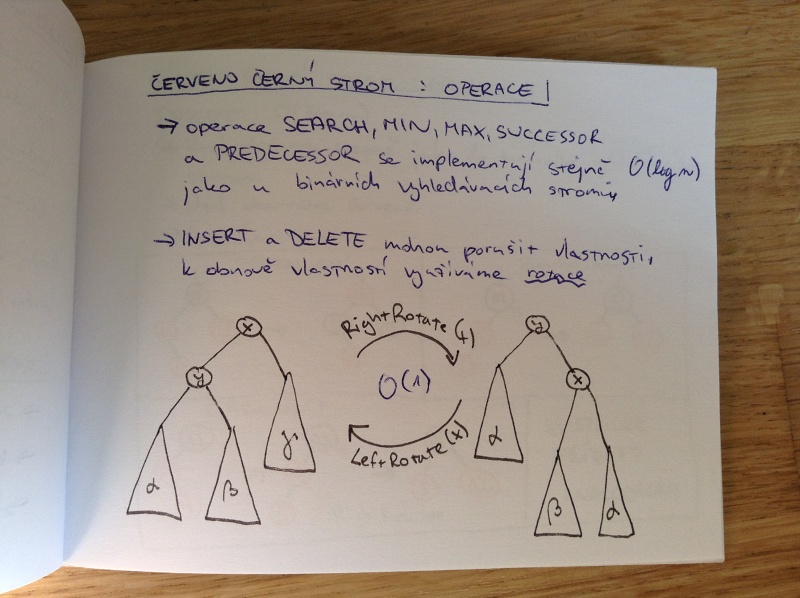 ČERVENO ČERNÝ STROM : OPERACE
→ operace SEARCH, MIN, MAX, SUCCESSOR
a PREDECESSOR se implementují stejně O(log n)
jako u binárních vyhledávacích stromů
→ INSERT a DELETE mohou porušit vlastnosti,
k obnově vlastností využíváme rotace
RightRotate(y)
x
y
α
β
γ
O(1)
LeftRotate(x)
y
x
α
β
α